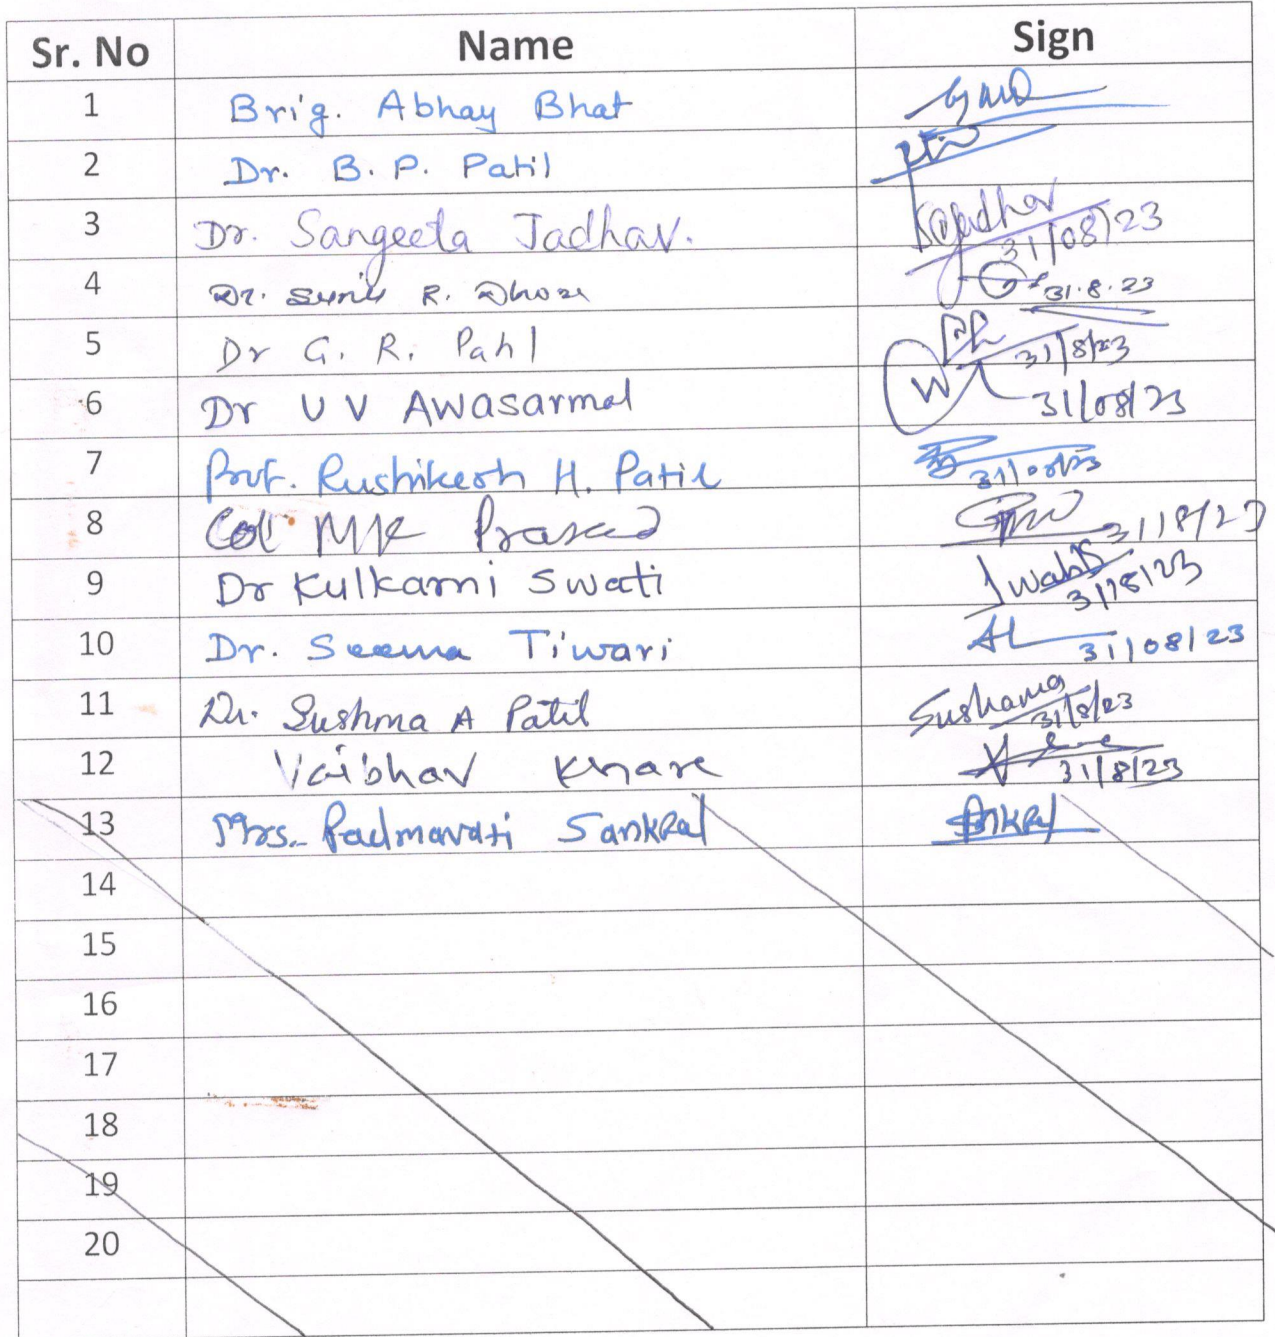 Sr. No Name Sign
1 Brig. Abhay Bhat
2 Dr. B. P. Patil
3 Dr. Sangeeta Jadhav. 31/08/23
4 Dr. Sunil R. Dhore 31.8.23
5 Dr G. R. Patil 31/8/23
6 Dr U V Awasarmal 31/08/23
7 Prof. Rushikesh H. Patil 31/08/23
8 Col MK Prasad 31/8/23
9 Dr Kulkarni Swati 31/8/23
10 Dr. Seema Tiwari 31/08/23
11 Dr. Sushma A Patil Sushama 31/8/23
12 Vaibhav Khare 31/8/23
13 Mrs. Padmavati Sankpal
14
15
16
17
18
19
20